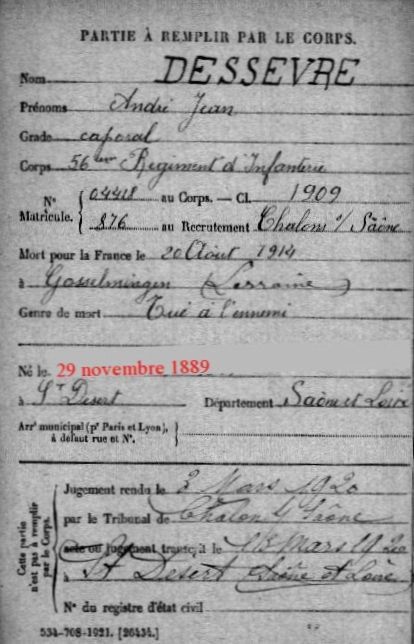 PARTIE À REMPLIR PAR LE CORPS.
Nom DESSEVRE
Prénoms André Jean
Grade caporal
Corps 56ème Régiment d'Infanterie
N° Matricule. { 04418 au Corps. — Cl. 1909
876 au Recrutement Chalons s/ Saône
Mort pour la France le 20 Août 1914
à Gosselmingen (Lorraine)
Genre de mort Tué à l'ennemi
Né le 29 novembre 1889
à St Desert Département Saône et Loire
Arrt municipal (pr Paris et Lyon), à défaut rue et N°.
Cette partie n'est pas à remplir par le Corps.
Jugement rendu le 2 Mars 1920
par le Tribunal de Chalon s/ Saône
acte ou jugement transcrit le 18 Mars 1920
à St Desert (Saône et Loire)
N° du registre d'état civil
534-708-1921. [26434.]